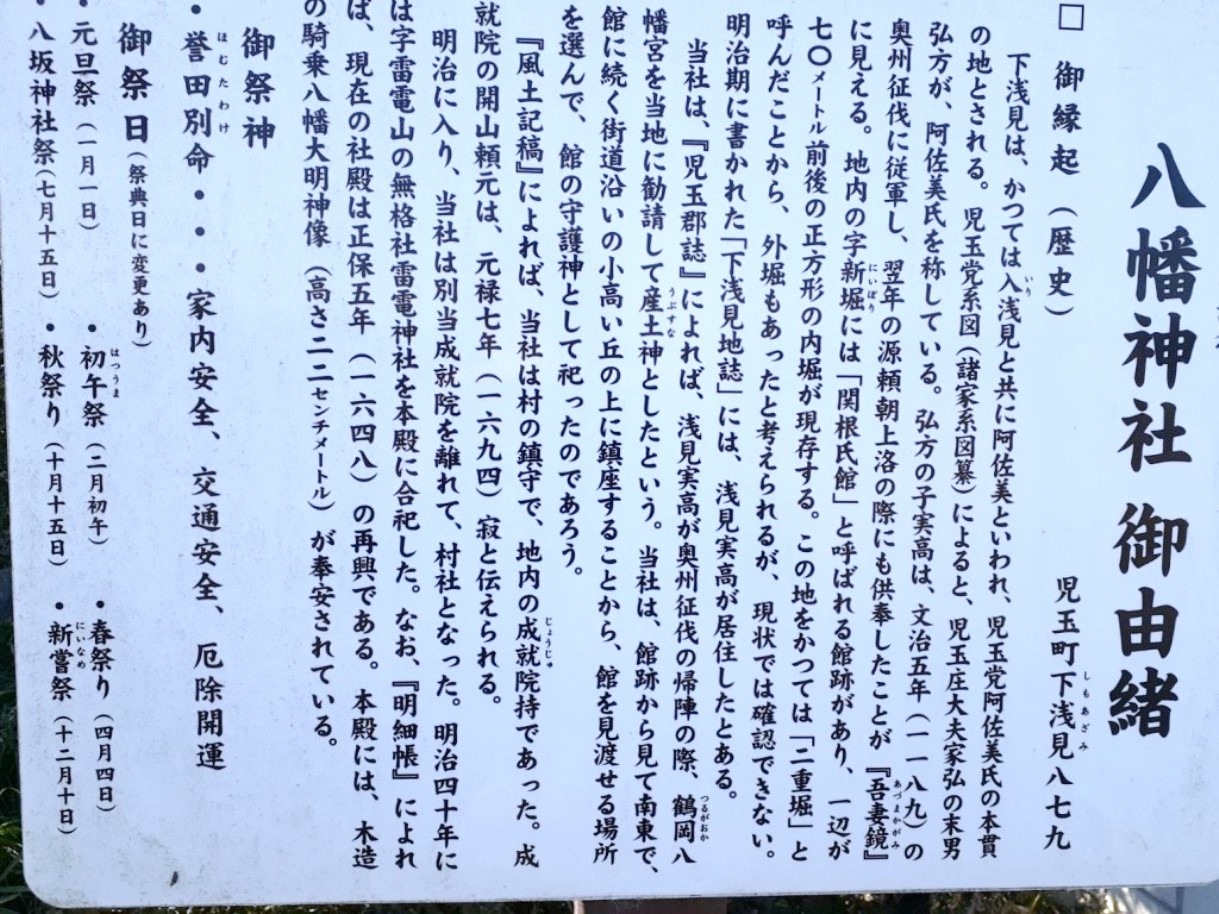 八幡神社 御由緒
児玉町下浅見八七九
しもあざみ
□ 御縁起（歴史）
下浅見は、かつては入浅見と共に阿佐美といわれ、児玉党阿佐美氏の本貫
いり
の地とされる。児玉党系図（諸家系図纂）によると、児玉庄大夫家弘の末男
弘方が、阿佐美氏を称している。弘方の子実高は、文治五年（一一八九）の
奥州征伐に従軍し、翌年の源頼朝上洛の際にも供奉したことが『吾妻鏡』
あづまかがみ
に見える。地内の字新堀には「関根氏館」と呼ばれる館跡があり、一辺が
にいぼり
七〇メートル前後の正方形の内堀が現存する。この地をかつては「二重堀」と
呼んだことから、外堀もあったと考えられるが、現状では確認できない。
明治期に書かれた「下浅見地誌」には、浅見実高が居住したとある。
当社は、『児玉郡誌』によれば、浅見実高が奥州征伐の帰陣の際、鶴岡八
つるがおか
幡宮を当地に勧請して産土神としたという。当社は、館跡から見て南東で、
うぶすな
館に続く街道沿いの小高い丘の上に鎮座することから、館を見渡せる場所
を選んで、館の守護神として祀ったのであろう。
『風土記稿』によれば、当社は村の鎮守で、地内の成就院持であった。成
じょうじゅ
就院の開山頼元は、元禄七年（一六九四）寂と伝えられる。
明治に入り、当社は別当成就院を離れて、村社となった。明治四十年に
は字雷電山の無格社雷電神社を本殿に合祀した。なお、『明細帳』によれ
ば、現在の社殿は正保五年（一六四八）の再興である。本殿には、木造
の騎乗八幡大明神像（高さ二二センチメートル）が奉安されている。
御祭神
・誉田別命・・・家内安全、交通安全、厄除開運
ほむたわけ
御祭日（祭典日に変更あり）
・元旦祭（一月一日）・初午祭（二月初午）・春祭り（四月四日）
はつうま
・八坂神社祭（七月十五日）・秋祭り（十月十五日）・新嘗祭（十二月十日）
にいなめ